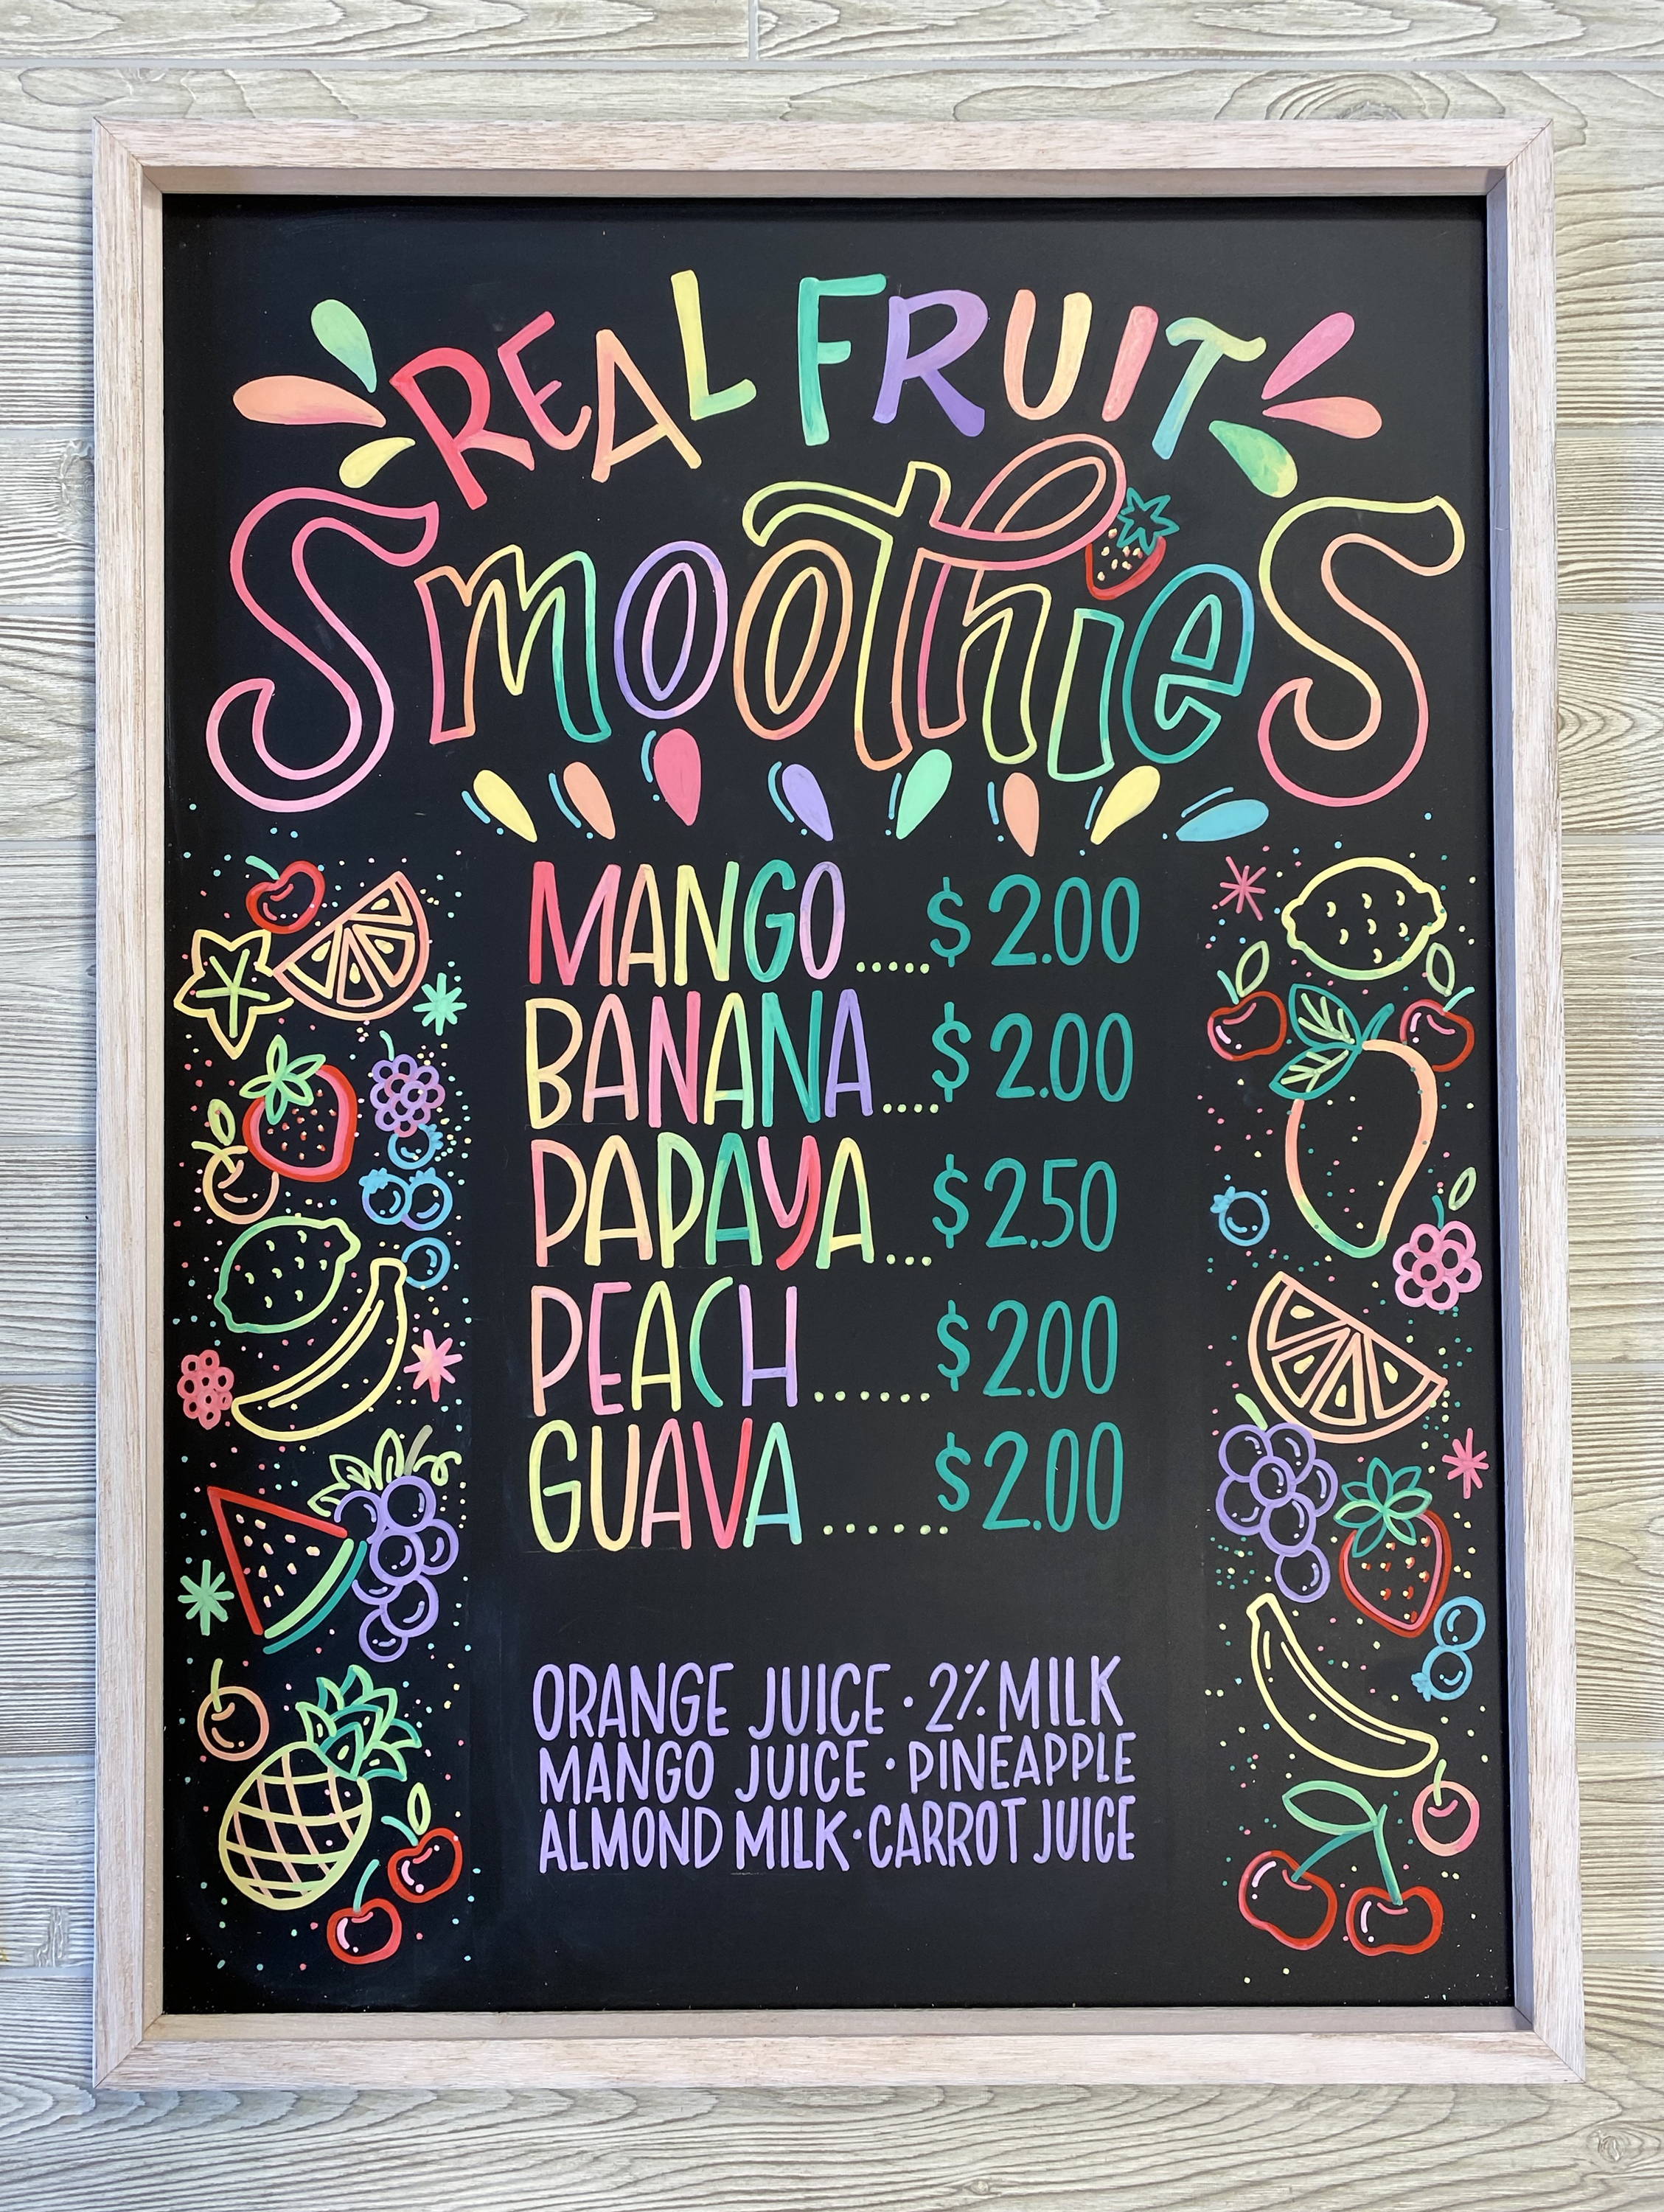 REAL FRUIT
SmoothieS
MANGO.....$2.00
BANANA....$2.00
PAPAYA...$2.50
PEACH......$2.00
GUAVA......$2.00
ORANGE JUICE · 2% MILK
MANGO JUICE · PINEAPPLE
ALMOND MILK · CARROT JUICE